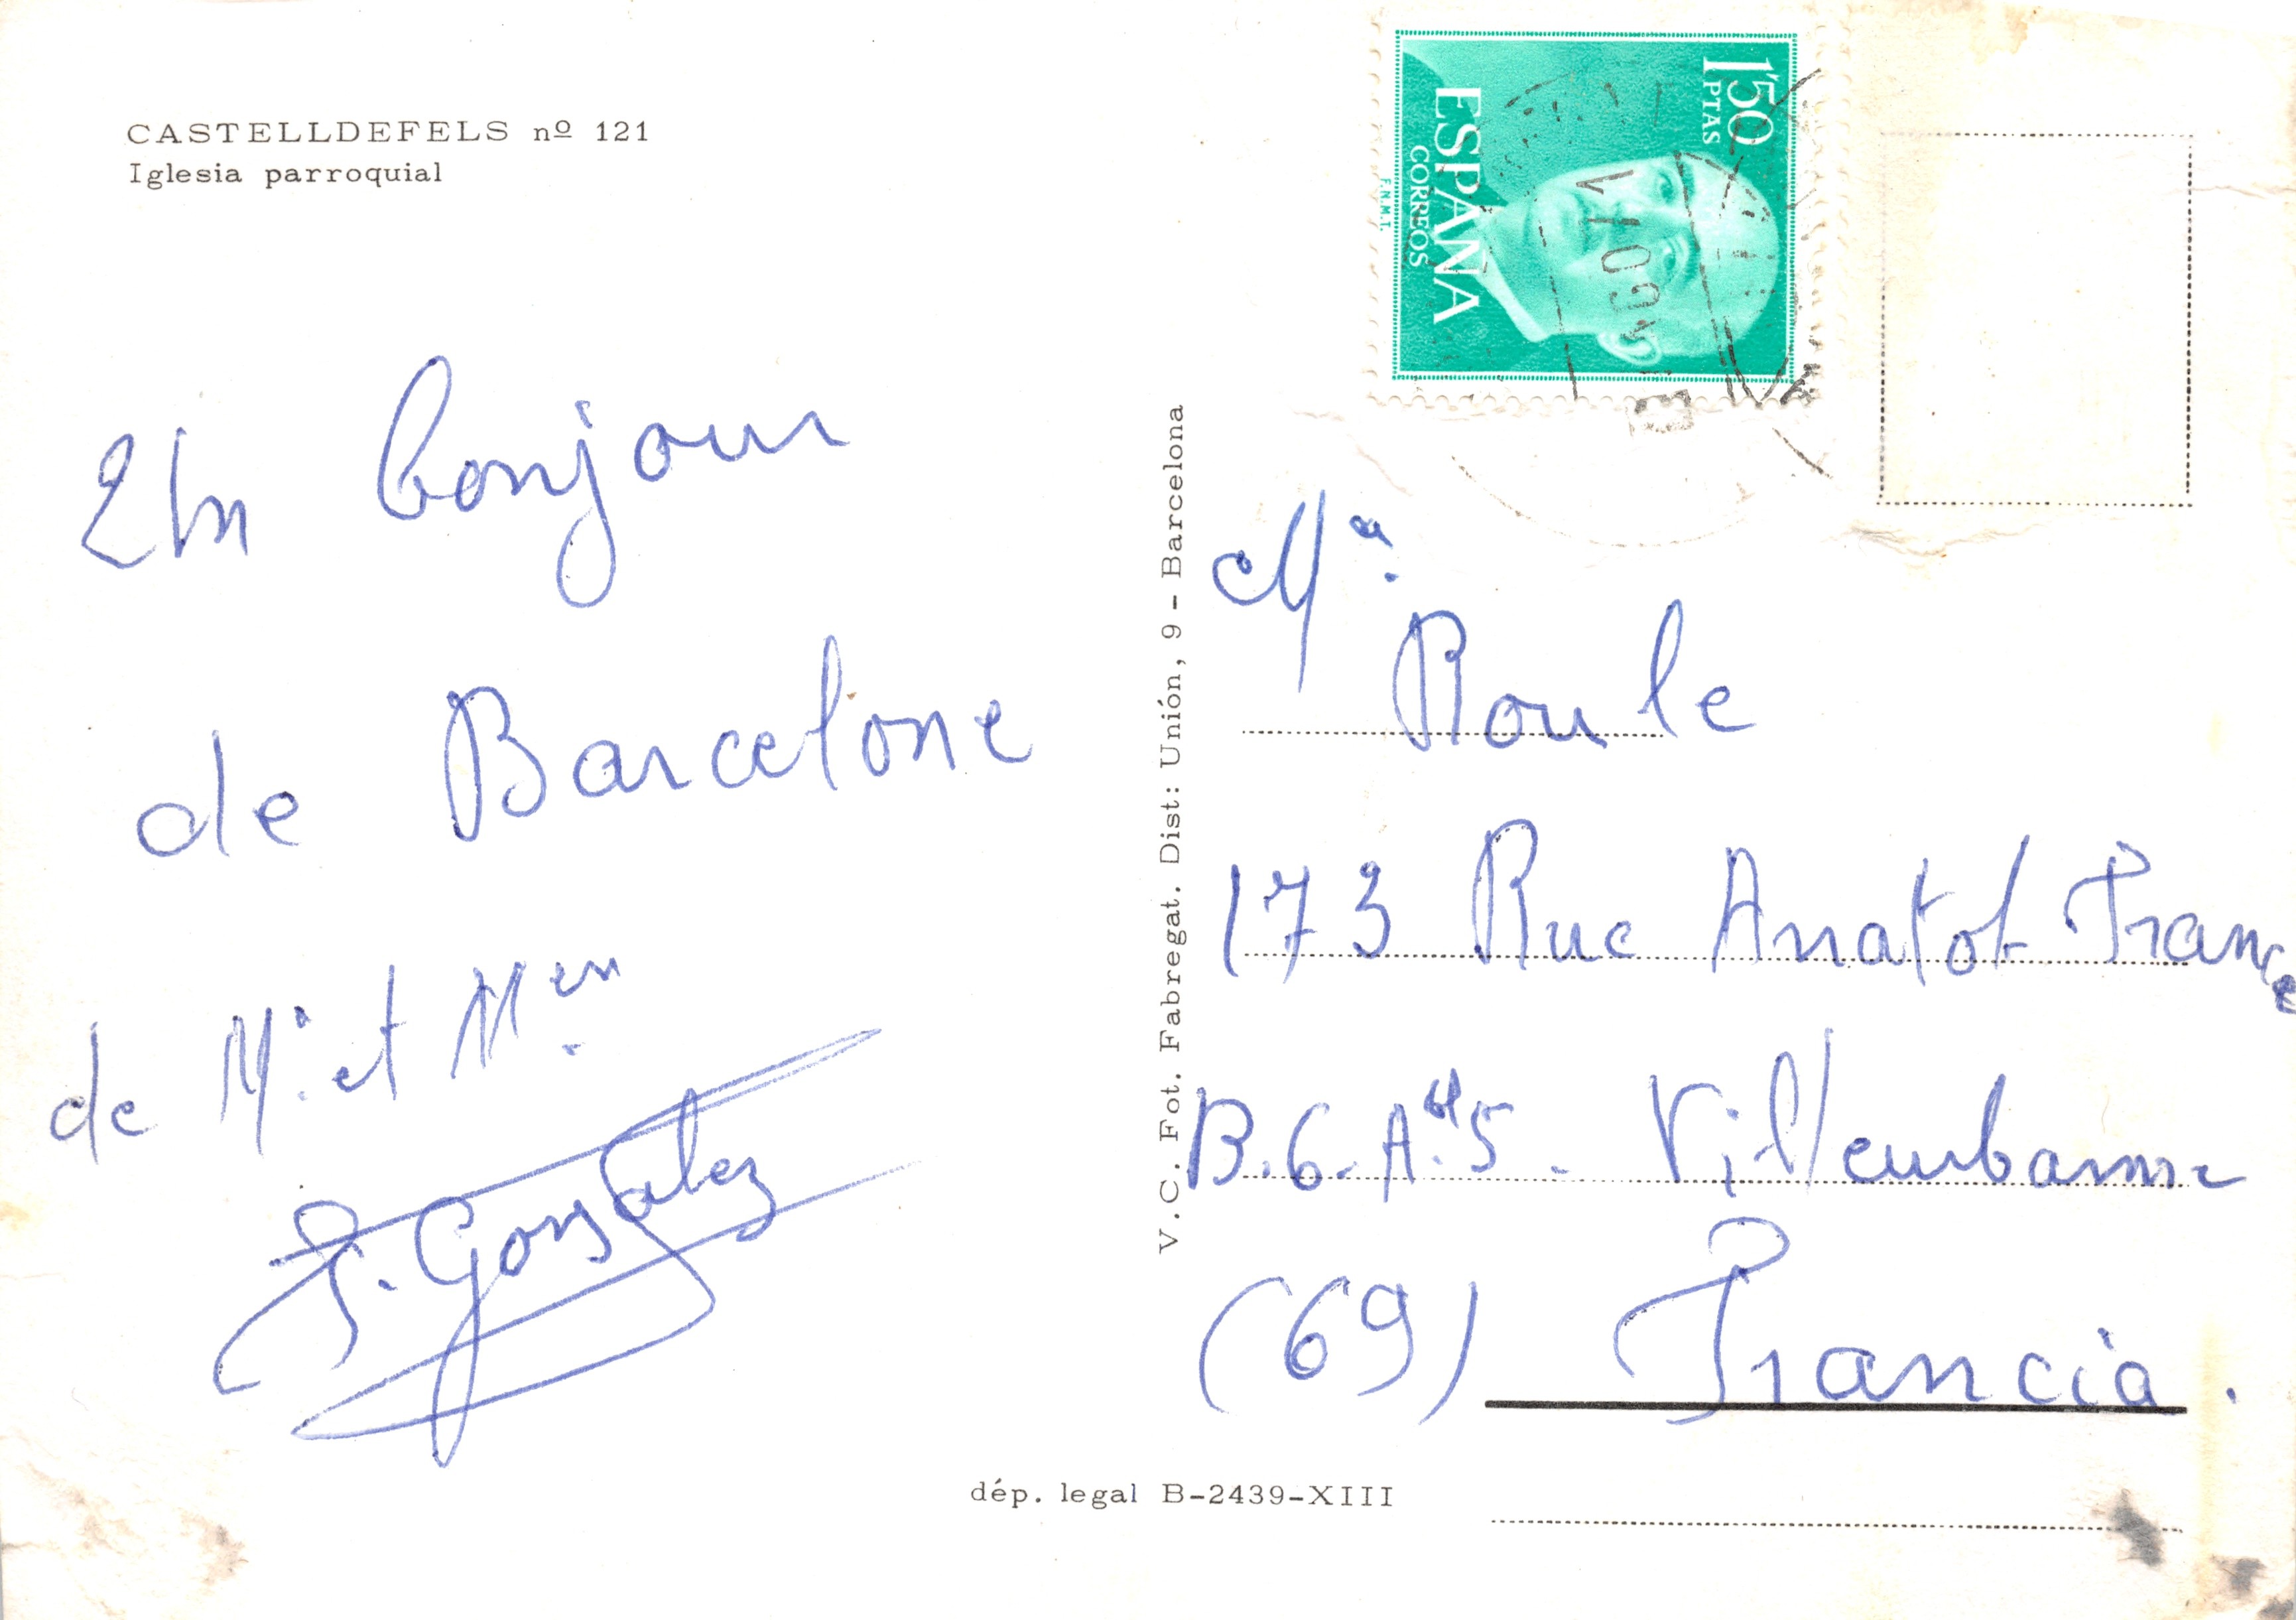 CASTELLDEFELS nº 121
Iglesia parroquial
Un bonjour
de Barcelone
de Mr. et Men.
J. Gonzalez
V. C. Fot. Fabregat. Dist: Unión, 9 - Barcelona
1'50
PTAS
ESPAÑA
CORREOS
F.N.M.T.
Ma.
Roule
173 Rue Anatol France
B.6. A. 5. Villeurbanne
(69) Francia.
dép. legal B-2439-XIII